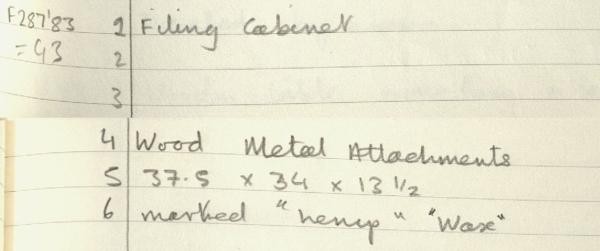 F287'83 1 Filing Cabinet
=43 2
3
4 Wood Metal Attachments
5 37.5 x 34 x 13 1/2
6 marked "hemp" "Wax"